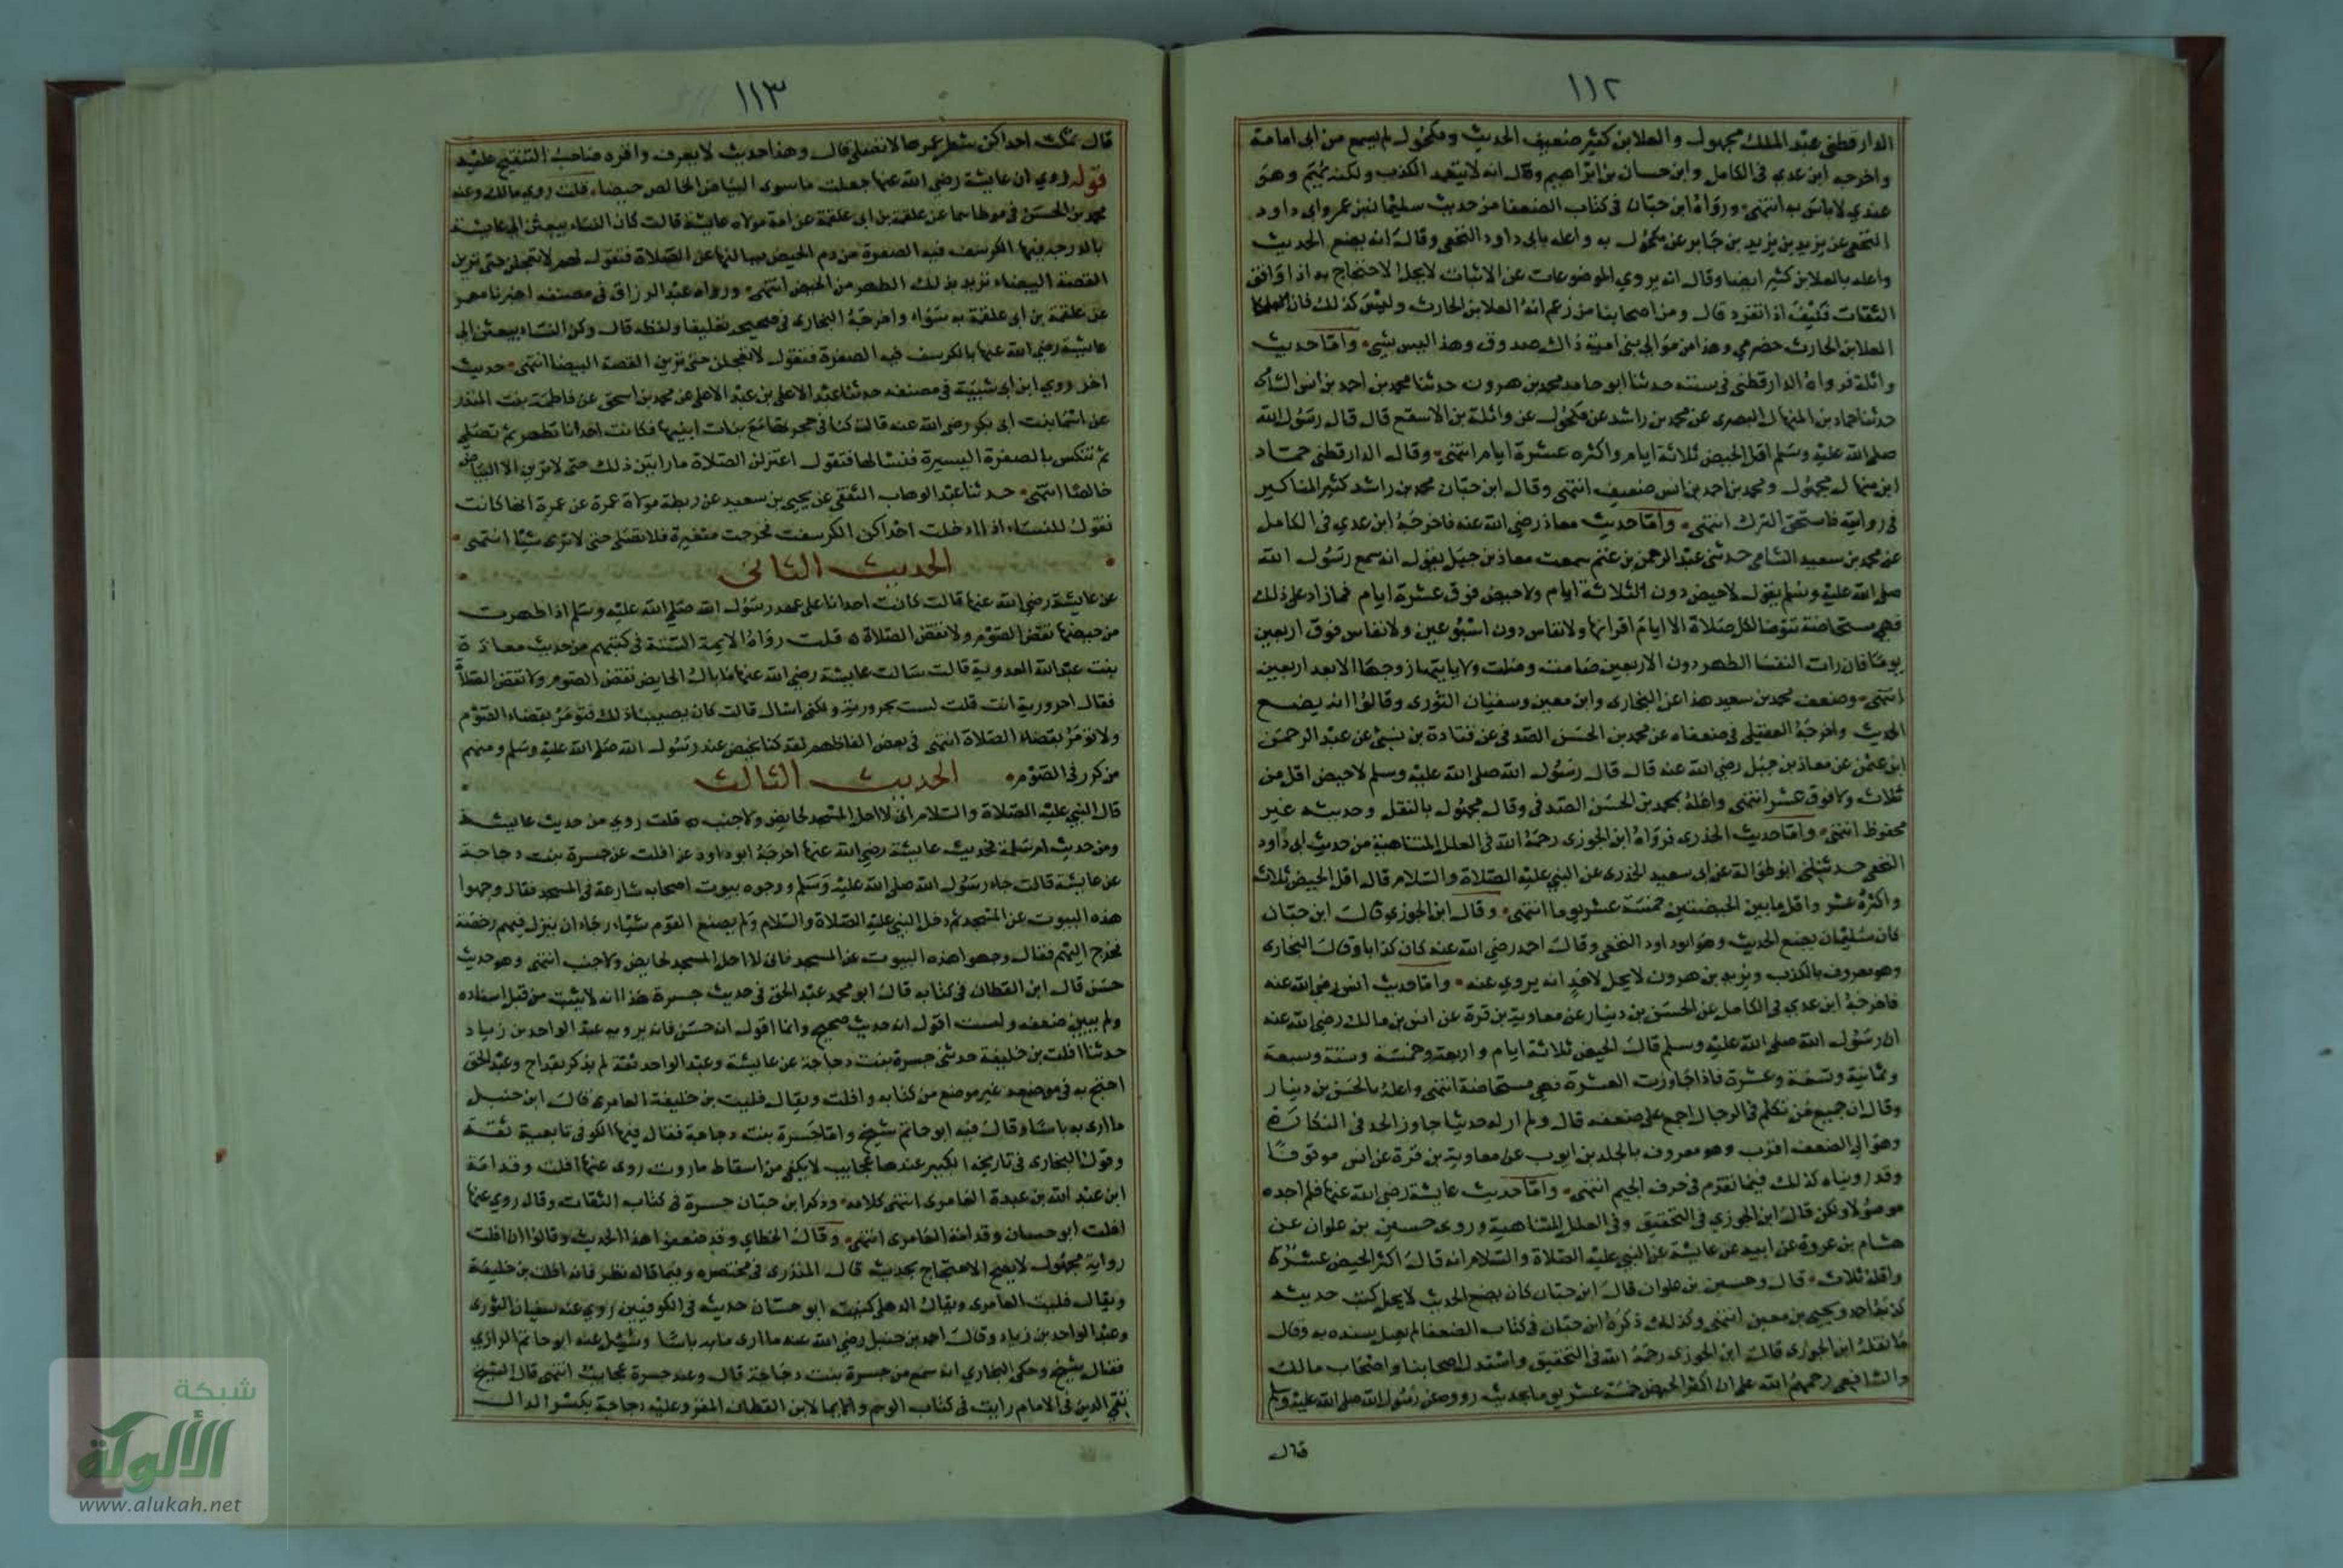 ١١٢
الدارقطنى عبد الملك مجهول والعلا بن كثير ضعيف الحديث ومكحول لم يسمع من ابى امامة
واخرجه ابن عدي فى الكامل وابن حسان بن ابراهيم وقال انه لا يتعمد الكذب ولكنه يهم وهو
عندي لا باس به انتهى ورواه ابن حبان فى كتاب الضعفا من حديث سليمان بن عمرو ابى داود
النخعى عن يزيد بن يزيد بن جابر عن مكحول به واعله بابى داود النخعى وقال انه يضع الحديث
واعله بالعلا بن كثير ايضا وقال انه يروي الموضوعات عن الاثبات لا يحل الاحتجاج به اذا وافق
الثقات فكيف اذا انفرد قال ومن اصحابنا من زعم انه العلا بن الحارث وليس كذلك فان
العلا بن الحارث حضرمي وهذا من موالي بنى امية ذاك صدوق وهذا ليس بشى واما حديث
واثلة فرواه الدارقطنى فى سننه حدثنا ابو حامد محمد بن هرون حدثنا محمد بن احمد بن انس الشامى
حدثنا حماد بن المنهال البصرى عن محمد بن راشد عن مكحول عن واثلة بن الاسقع قال قال رسول الله
صلى الله عليه وسلم اقل الحيض ثلاثة ايام واكثره عشرة ايام انتهى وقال الدارقطنى حماد
ابن منهال مجهول ومحمد بن احمد بن انس ضعيف انتهى وقال ابن حبان محمد بن راشد كثير المناكير
فى روايته فاستحق الترك انتهى واما حديث معاذ رضي الله عنه فاخرجه ابن عدي فى الكامل
عن محمد بن سعيد الشامى حدثنى عبد الرحمن بن غنم سمعت معاذ بن جبل يقول انه سمع رسول الله
صلى الله عليه وسلم يقول لا حيض دون الثلاثة ايام ولا حيض فوق عشرة ايام فما زاد على ذلك
فهي مستحاضة تتوضا لكل صلاة الا ايام اقرائها ولا نفاس دون اسبوعين ولا نفاس فوق اربعين
يوما فان رات النفسا الطهر دون الاربعين صامت وصلت ولا ياتيها زوجها الا بعد اربعين
انتهى وضعف محمد بن سعيد هذا عن البخارى وابن معين وسفيان الثورى وقالوا انه يضع
الحديث واخرجه العقيلى فى ضعفاه عن محمد بن الحسن الصدفى عن قتادة بن نسى عن عبد الرحمن
ابن غنم عن معاذ بن جبل رضي الله عنه قال قال رسول الله صلى الله عليه وسلم لا حيض اقل من
ثلاث ولا فوق عشر انتهى واعله بمحمد بن الحسن الصدفى وقال مجهول بالنقل وحديثه غير
محفوظ انتهى واما حديث الخدرى فرواه ابن الجوزى رحمه الله فى العلل المتناهية من حديث ابى داود
النخعى حدثنى ابو طوالة عن ابى سعيد الخدرى عن النبي عليه الصلاة والسلام قال اقل الحيض ثلاث
واكثره عشر واقل ما بين الحيضتين خمسة عشر يوما انتهى وقال ابن الجوزي قال ابن حبان
كان سليمان يضع الحديث وهو ابو داود النخعى وقال احمد رضي الله عنه كان كذابا وقال البخارى
وهو معروف بالكذب ويزيد بن هرون لا يحل لاحد انه يروي عنه واما حديث انس رضي الله عنه
فاخرجه ابن عدي فى الكامل عن الحسن بن دينار عن معاوية بن قرة عن انس بن مالك رضي الله عنه
ان رسول الله صلى الله عليه وسلم قال الحيض ثلاثة ايام واربعة وخمسة وستة وسبعة
وثمانية وتسعة وعشرة فاذا جاوزت العشرة فهي مستحاضة انتهى واعله بالحسن بن دينار
وقال ان جميع من تكلم فى الرجال اجمع على ضعفه قال ولم ار له حديثا جاوز الحد فى النكارة
وهو الى الضعف اقرب وهو معروف بالجلد بن ايوب عن معاوية بن قرة عن انس موقوفا
وقد رويناه كذلك فيما تقدم فى حرف الجيم انتهى واما حديث عايشة رضي الله عنها فلم اجده
موصولا ولكن قال ابن الجوزي فى التحقيق وفى العلل المتناهية وروى حسين بن علوان عن
هشام بن عروة عن ابيه عن عايشة عن النبي عليه الصلاة والسلام انه قال اكثر الحيض عشرة
واقله ثلاث قال وحسين بن علوان قال ابن حبان كان يضع الحديث لا يحل كتب حديثه
كذبه احمد ويحيى بن معين انتهى وكذلك ذكره ابن حبان فى كتاب الضعفا لم يصل سنده به وقال
ما نقله ابن الجوزى قال ابن الجوزى رحمه الله فى التحقيق واستدل اصحابنا واصحاب مالك
والشافعى رحمهم الله على ان اكثر الحيض خمسة عشر يوما بحديث رووه عن رسول الله صلى الله عليه وسلم
قال
١١٣
قال تمكث احداكن شطر عمرها لا تصلي قال وهذا حديث لا يعرف واقره صاحب التنقيح عليه
قوله روي ان عايشة رضي الله عنها جعلت ما سوى البياض الخالص حيضا قلت روي مالك وعنه
محمد بن الحسن فى موطاهما عن علقمة بن ابى علقمة عن امه مولاة عايشة قالت كان النساء يبعثن الى عايشة
بالدرجة فيها الكرسف فيه الصفرة من دم الحيض يسالنها عن الصلاة فتقول لهن لا تعجلن حتى ترين
القصة البيضاء تريد بذلك الطهر من الحيض انتهى ورواه عبد الرزاق فى مصنفه اخبرنا معمر
عن علقمة بن ابى علقمة به سواء واخرجه البخارى فى صحيحه تعليقا ولفظه قال وكن النساء يبعثن الى
عايشة رضي الله عنها بالكرسف فيه الصفرة فتقول لا تعجلن حتى ترين القصة البيضا انتهى حديث
اخر روي ابن ابى شيبة فى مصنفه حدثنا عبد الاعلى بن عبد الاعلى عن محمد بن اسحق عن فاطمة بنت المنذر
عن اسما بنت ابى بكر رضي الله عنه قالت كنا فى حجرها مع بنات ابنتها فكانت احدانا تطهر ثم تصلي
ثم تنتكس بالصفرة اليسيرة فنسالها فتقول اعتزلن الصلاة ما رايتن ذلك حتى لا ترين الا البياض
خالصا انتهى حدثنا عبد الوهاب الثقفى عن يحيى بن سعيد عن ريطة مولاة عمرة عن عمرة انها كانت
تقول للنساء اذا ادخلت احداكن الكرسفت فخرجت متغيرة فلا تصلى حتى لا ترى شيا انتهى
الحديث الثانى
عن عايشة رضي الله عنها قالت كانت احدانا على عهد رسول الله صلى الله عليه وسلم اذا طهرت
من حيضها تقض الصوم ولا تقض الصلاة قلت رواه الايمة الستة فى كتبهم من حديث معاذة
بنت عبد الله العدوية قالت سالت عايشة رضي الله عنها ما بال الحايض تقض الصوم ولا تقض الصلاة
فقال احرورية انت قلت لست بحرورية ولكنى اسال قالت كان يصيبنا ذلك فنؤمر بقضاء الصوم
ولا نؤمر بقضاء الصلاة انتهى فى بعض الفاظهم لقد كنا نحيض عند رسول الله صلى الله عليه وسلم ومنهم
من كرر فى الصوم الحديث الثالث
قال النبي عليه الصلاة والسلام انى لا احل المسجد لحايض ولا جنب قلت روي من حديث عايشة
ومن حديث ام سلمة فحديث عايشة رضي الله عنها اخرجه ابو داود عن افلت عن جسرة بنت دجاجة
عن عايشة قالت جاء رسول الله صلى الله عليه وسلم ووجوه بيوت اصحابه شارعة فى المسجد فقال وجهوا
هذه البيوت عن المسجد ثم دخل النبي عليه الصلاة والسلام ولم يصنع القوم شيئا رجاء ان ينزل فيهم رخصة
فخرج اليهم فقال وجهوا هذه البيوت عن المسجد فانى لا احل المسجد لحايض ولا جنب انتهى وهو حديث
حسن قال ابن القطان فى كتابه قال ابو محمد عبد الحق فى حديث جسرة هذا انه لا يثبت من قبل اسناده
ولم يبين ضعفه ولست اقول انه حديث صحيح وانما اقول انه حسن فانه يرويه عبد الواحد بن زياد
حدثنا افلت بن خليفة حدثنى جسرة بنت دجاجة عن عايشة وعبد الواحد ثقة لم يذكر بقداح وعبد الحق
احتج به فى موضعه غير موضع من كتابه وافلت ويقال فليت بن خليفة العامرى قال ابن حنبل
ما ارى به باسا وقال فيه ابو حاتم شيخ واما جسرة بنت دجاجة فقال فيها الكوفى تابعية ثقة
وقول البخارى فى تاريخه الكبير عندها عجايب لا يكفى من اسقاط ما روت روى عنها افلت وقدامة
ابن عبد الله بن عبدة العامرى انتهى كلامه وذكر ابن حبان جسرة فى كتاب الثقات وقال روي عنها
افلت ابو حسان وقدامة العامرى انتهى وقال الخطابي وقد ضعفوا هذا الحديث وقالوا ان افلت
رواية مجهول لا يصح الاحتجاج بحديثه قال المنذرى فى مختصره وفيما قاله نظر فانه افلت بن خليفة
ويقال فليت العامرى ويقال الذهلى كنيته ابو حسان حديثه فى الكوفيين روي عنه سفيان الثورى
وعبد الواحد بن زياد وقال احمد بن حنبل رضي الله عنه ما ارى به باسا وسئل عنه ابو حاتم الرازي
فقال شيخ وحكى البخاري انه سمع من جسرة بنت دجاجة قال وعند جسرة عجايب انتهى قال الشيخ
تقي الدين فى الامام رايت فى كتاب الوهم والايهام لابن القطان المقرو عليه دجاجة بكسر الدال
شبكة
الألوكة
www.alukah.net